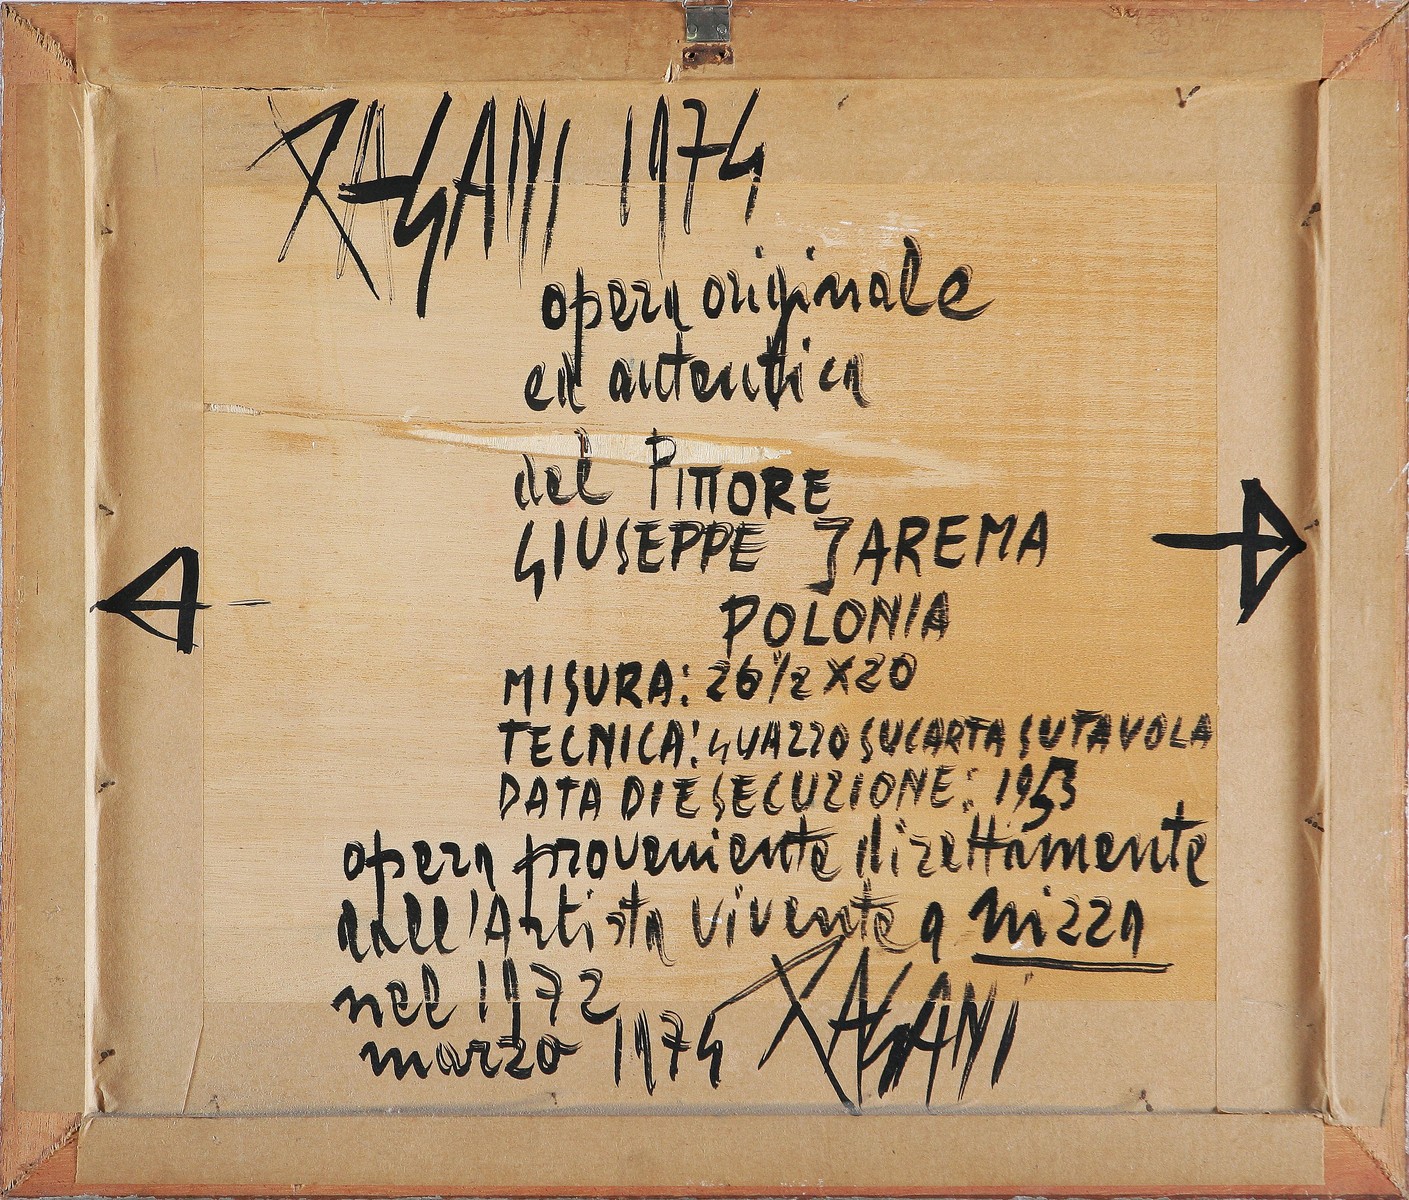 PAGANI 1974
opera originale
ed autentica
del PITTORE
GIUSEPPE JAREMA
POLONIA
MISURA: 26 1/2 X 20
TECNICA: GUAZZO SU CARTA SU TAVOLA
DATA DI ESECUZIONE: 1953
opera proveniente direttamente
dall'Artista vivente a Nizza
nel 1972
marzo 1974 PAGANI